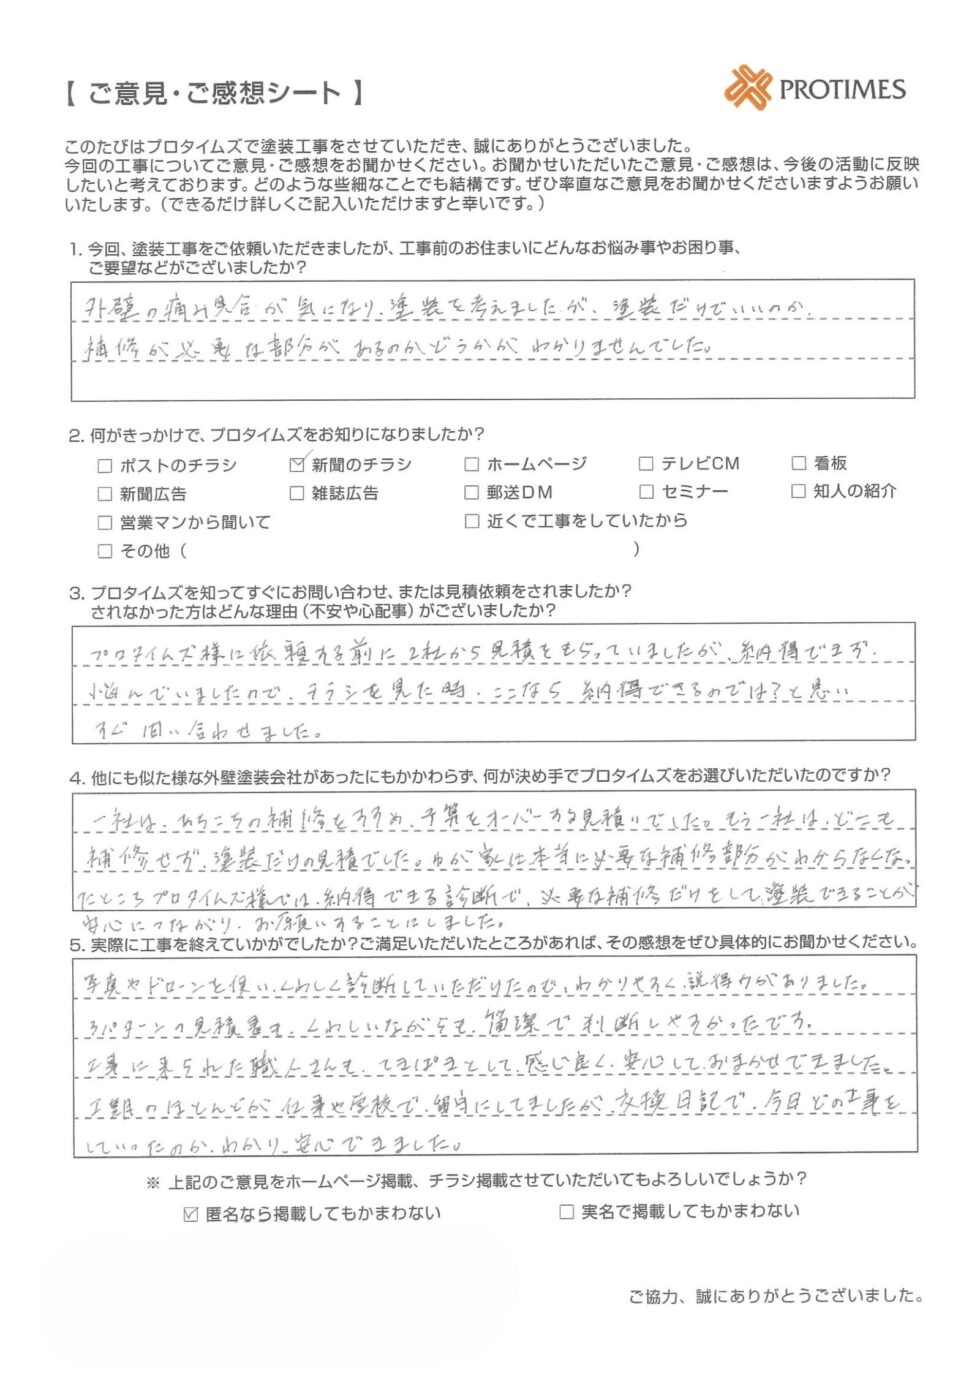 【 ご意見・ご感想シート 】
PROTIMES
このたびはプロタイムズで塗装工事をさせていただき、誠にありがとうございました。
今回の工事についてご意見・ご感想をお聞かせください。お聞かせいただいたご意見・ご感想は、今後の活動に反映
したいと考えております。どのような些細なことでも結構です。ぜひ率直なご意見をお聞かせくださいますようお願い
いたします。（できるだけ詳しくご記入いただけますと幸いです。）
1. 今回、塗装工事をご依頼いただきましたが、工事前のお住まいにどんなお悩み事やお困り事、
ご要望などがございましたか？
外壁の痛み具合が気になり、塗装を考えましたが、塗装だけでいいのか、
補修が必要な部分があるのかどうかが わかりませんでした。
2. 何がきっかけで、プロタイムズをお知りになりましたか？
□ ポストのチラシ ☑ 新聞のチラシ □ ホームページ □ テレビCM □ 看板
□ 新聞広告 □ 雑誌広告 □ 郵送DM □ セミナー □ 知人の紹介
□ 営業マンから聞いて □ 近くで工事をしていたから
□ その他（ ）
3. プロタイムズを知ってすぐにお問い合わせ、または見積依頼をされましたか？
されなかった方はどんな理由（不安や心配事）がございましたか？
プロタイムズ様に依頼する前に2社から見積をもらっていましたが、納得できず、
悩んでいましたので、チラシを見た時、ここなら 納得できるのでは？と思い
すぐ 問い合わせました。
4. 他にも似た様な外壁塗装会社があったにもかかわらず、何が決め手でプロタイムズをお選びいただいたのですか？
一社は、あちこちの補修をすすめ、予算をオーバーする見積りでした。もう一社は、どこも
補修せず、塗装だけの見積でした。わが家は本当に必要な補修部分がわからなくな
たところプロタイムズ様では、納得できる診断で、必要な補修だけをして、塗装できることが
安心につながり、お願いすることにしました。
5. 実際に工事を終えていかがでしたか？ご満足いただいたところがあれば、その感想をぜひ具体的にお聞かせください。
写真やドローンを使い、くわしく診断していただけたので、わかりやすく、説得力がありました。
3パターンの見積書も、くわしいながらも、簡潔で判断しやすかったです。
工事に来られた職人さんも、てきぱきとして、感じ良く、安心しておまかせできました。
工期のほとんどが、仕事や学校で、留守にしてましたが、交換日記で、今日どの工事を
していったのか、わかり、安心できました。
※ 上記のご意見をホームページ掲載、チラシ掲載させていただいてもよろしいでしょうか？
☑ 匿名なら掲載してもかまわない □ 実名で掲載してもかまわない
ご協力、誠にありがとうございました。